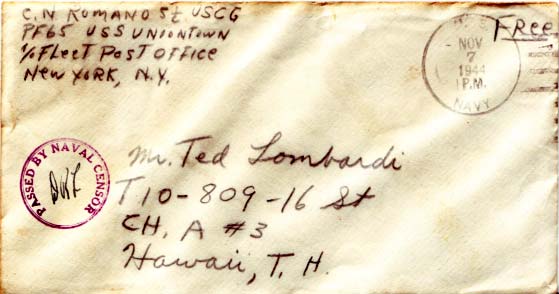 C.N ROMANO S2 USCG
PF65 USS UNIONTOWN
% FLEET POST OFFICE
NEW YORK, N.Y.
Free
NOV
7
1944
1 P.M.
NAVY
PASSED BY NAVAL CENSOR
Mr. Ted Lombardi
T10-809-16 St
CH. A #3
Hawaii, T. H.